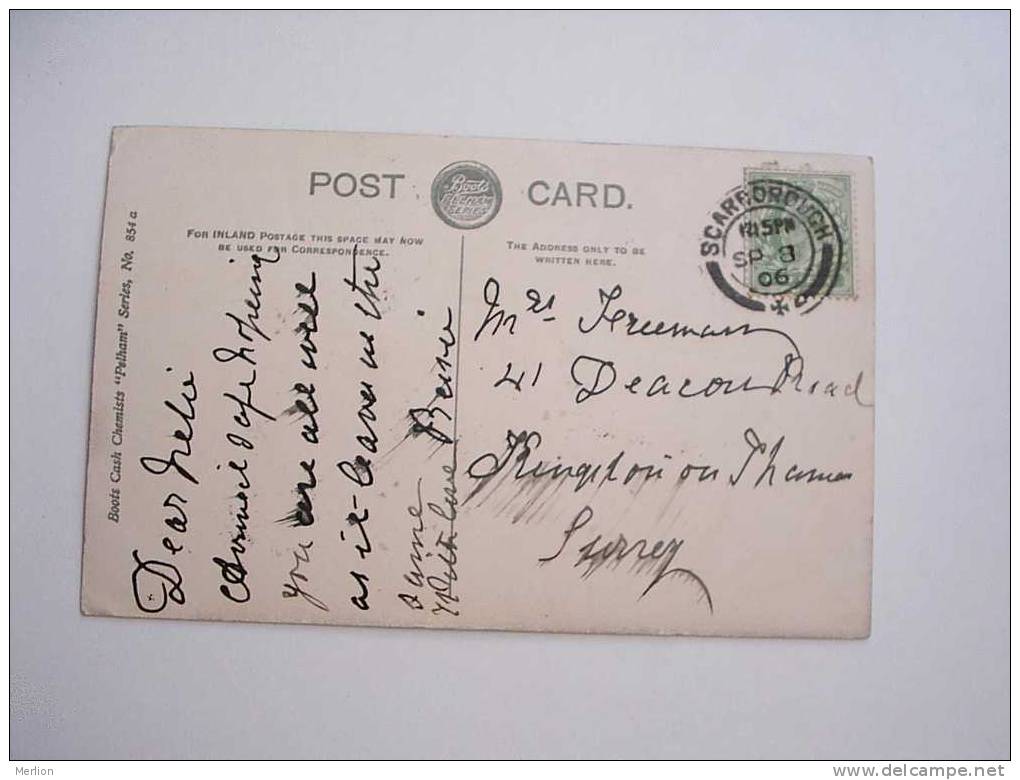 POST CARD.
Boots
PELHAM
SERIES
FOR INLAND POSTAGE THIS SPACE MAY NOW
BE USED FOR CORRESPONDENCE.
THE ADDRESS ONLY TO BE
WRITTEN HERE.
SCARBOROUGH
12.15PM
SP 8
06
Boots Cash Chemists "Pelham" Series, No. 854 a
Dear Nelie
Arrived safe hopeing
you are all well
as it leaves us the
same
With love
Mrs Freeman
41 Deacon Road
Kingston on Thames
Surrey
Merlion
delcampe.net